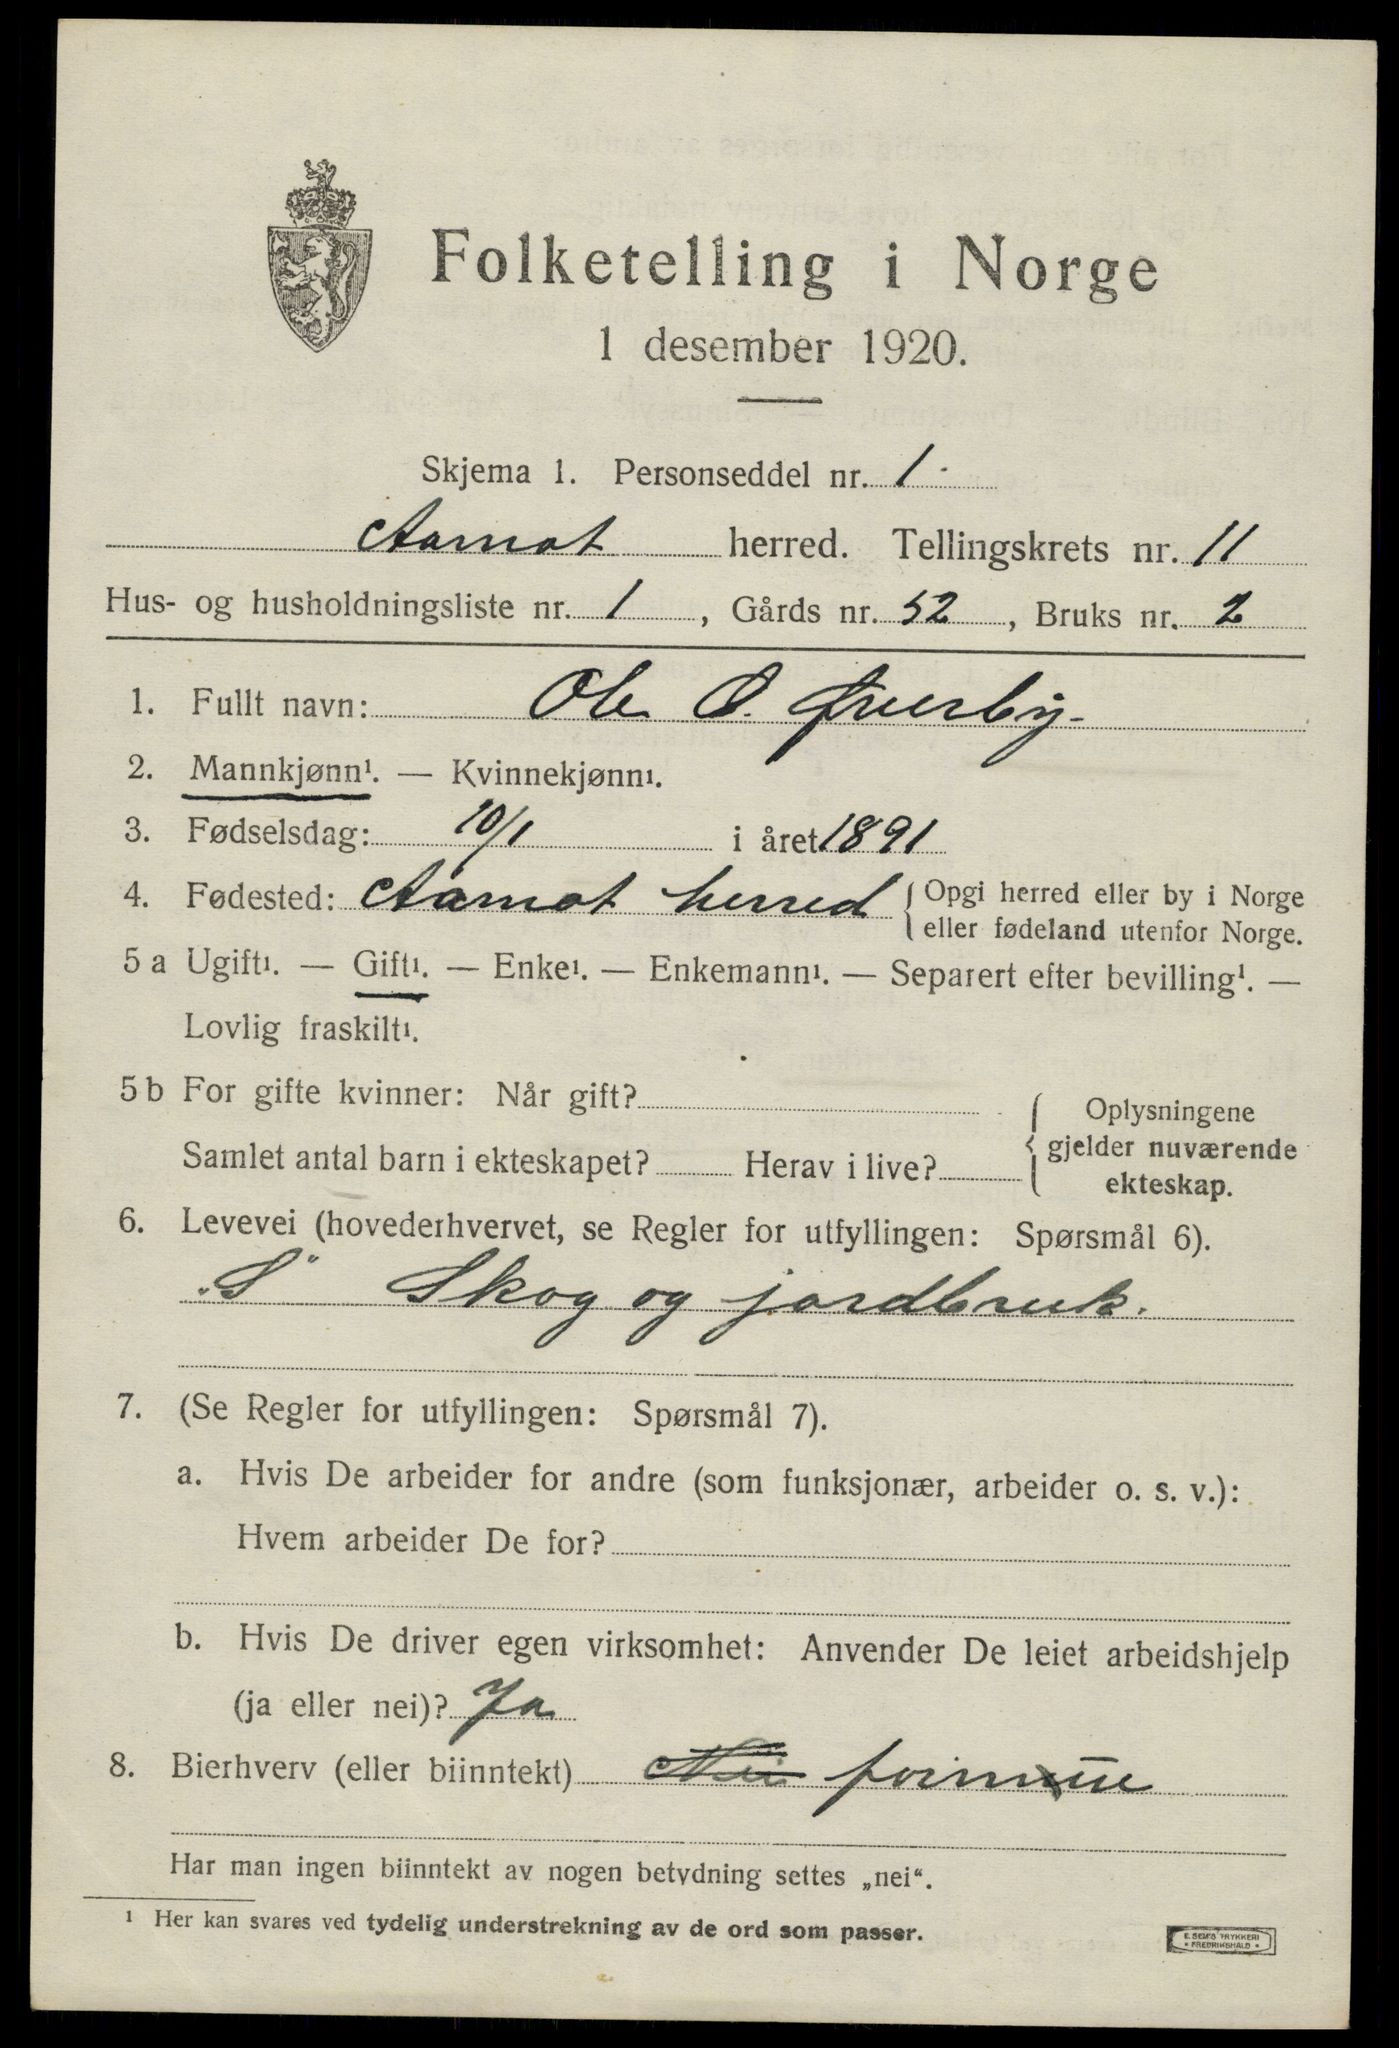 Folketelling i Norge
1 desember 1920.
Skjema 1. Personseddel nr. 1
Aamot herred. Tellingskrets nr. 11
Hus- og husholdningsliste nr. 1, Gårds nr. 52, Bruks nr. 2
1. Fullt navn: Ole O. Øverby.
2. Mannkjønn¹. — Kvinnekjønn¹.
3. Fødselsdag: 10/1 i året 1891
4. Fødested: Aamot herred { Opgi herred eller by i Norge
eller fødeland utenfor Norge.
5 a Ugift¹. — Gift¹. — Enke¹. — Enkemann¹. — Separert efter bevilling¹. —
Lovlig fraskilt¹.
5 b For gifte kvinner: Når gift?
Samlet antal barn i ekteskapet? Herav i live?
{ Oplysningene
gjelder nuværende
ekteskap.
6. Levevei (hovederhvervet, se Regler for utfyllingen: Spørsmål 6).
„S" Skog og jordbruk.
7. (Se Regler for utfyllingen: Spørsmål 7).
a. Hvis De arbeider for andre (som funksjonær, arbeider o. s. v.):
Hvem arbeider De for?
b. Hvis De driver egen virksomhet: Anvender De leiet arbeidshjelp
(ja eller nei)? Ja
8. Bierhverv (eller biinntekt) Nei formue
Har man ingen biinntekt av nogen betydning settes „nei".
¹ Her kan svares ved tydelig understrekning av de ord som passer.
E. SEM'S TRYKKERI
• FREDRIKSHALD •